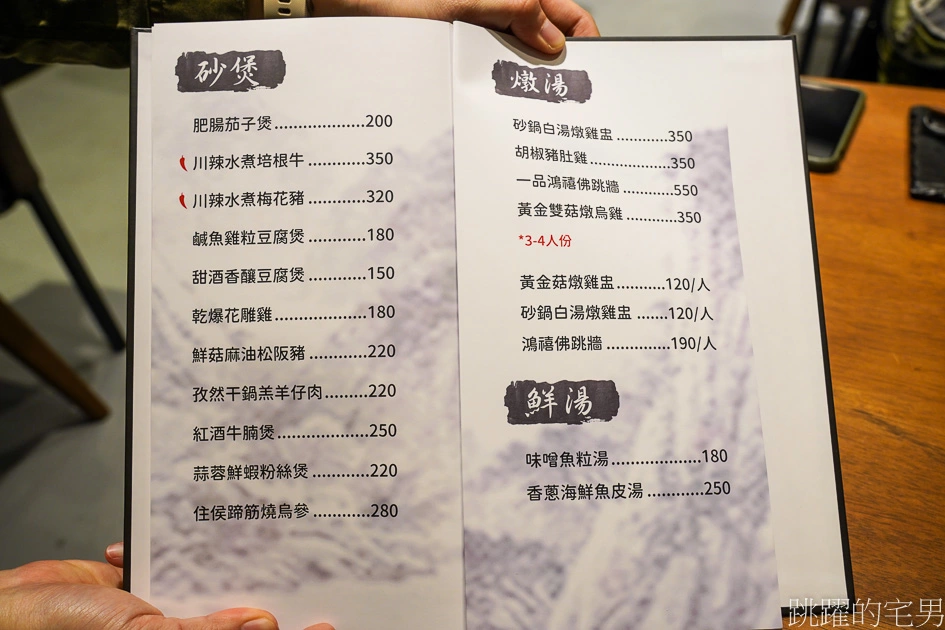 砂煲
肥腸茄子煲....................200
川辣水煮培根牛............350
川辣水煮梅花豬............320
鹹魚雞粒豆腐煲............180
甜酒香釀豆腐煲............150
乾爆花雕雞....................180
鮮菇麻油松阪豬............220
孜然干鍋羔羊仔肉.........220
紅酒牛腩煲....................250
蒜蓉鮮蝦粉絲煲............220
住侯蹄筋燒烏參............280
燉湯
砂鍋白湯燉雞盅............350
胡椒豬肚雞....................350
一品鴻禧佛跳牆............550
黃金雙菇燉烏雞............350
*3-4人份
黃金菇燉雞盅...........120/人
砂鍋白湯燉雞盅.......120/人
鴻禧佛跳牆..............190/人
鮮湯
味噌魚粒湯....................180
香蔥海鮮魚皮湯............250
跳躍的宅男